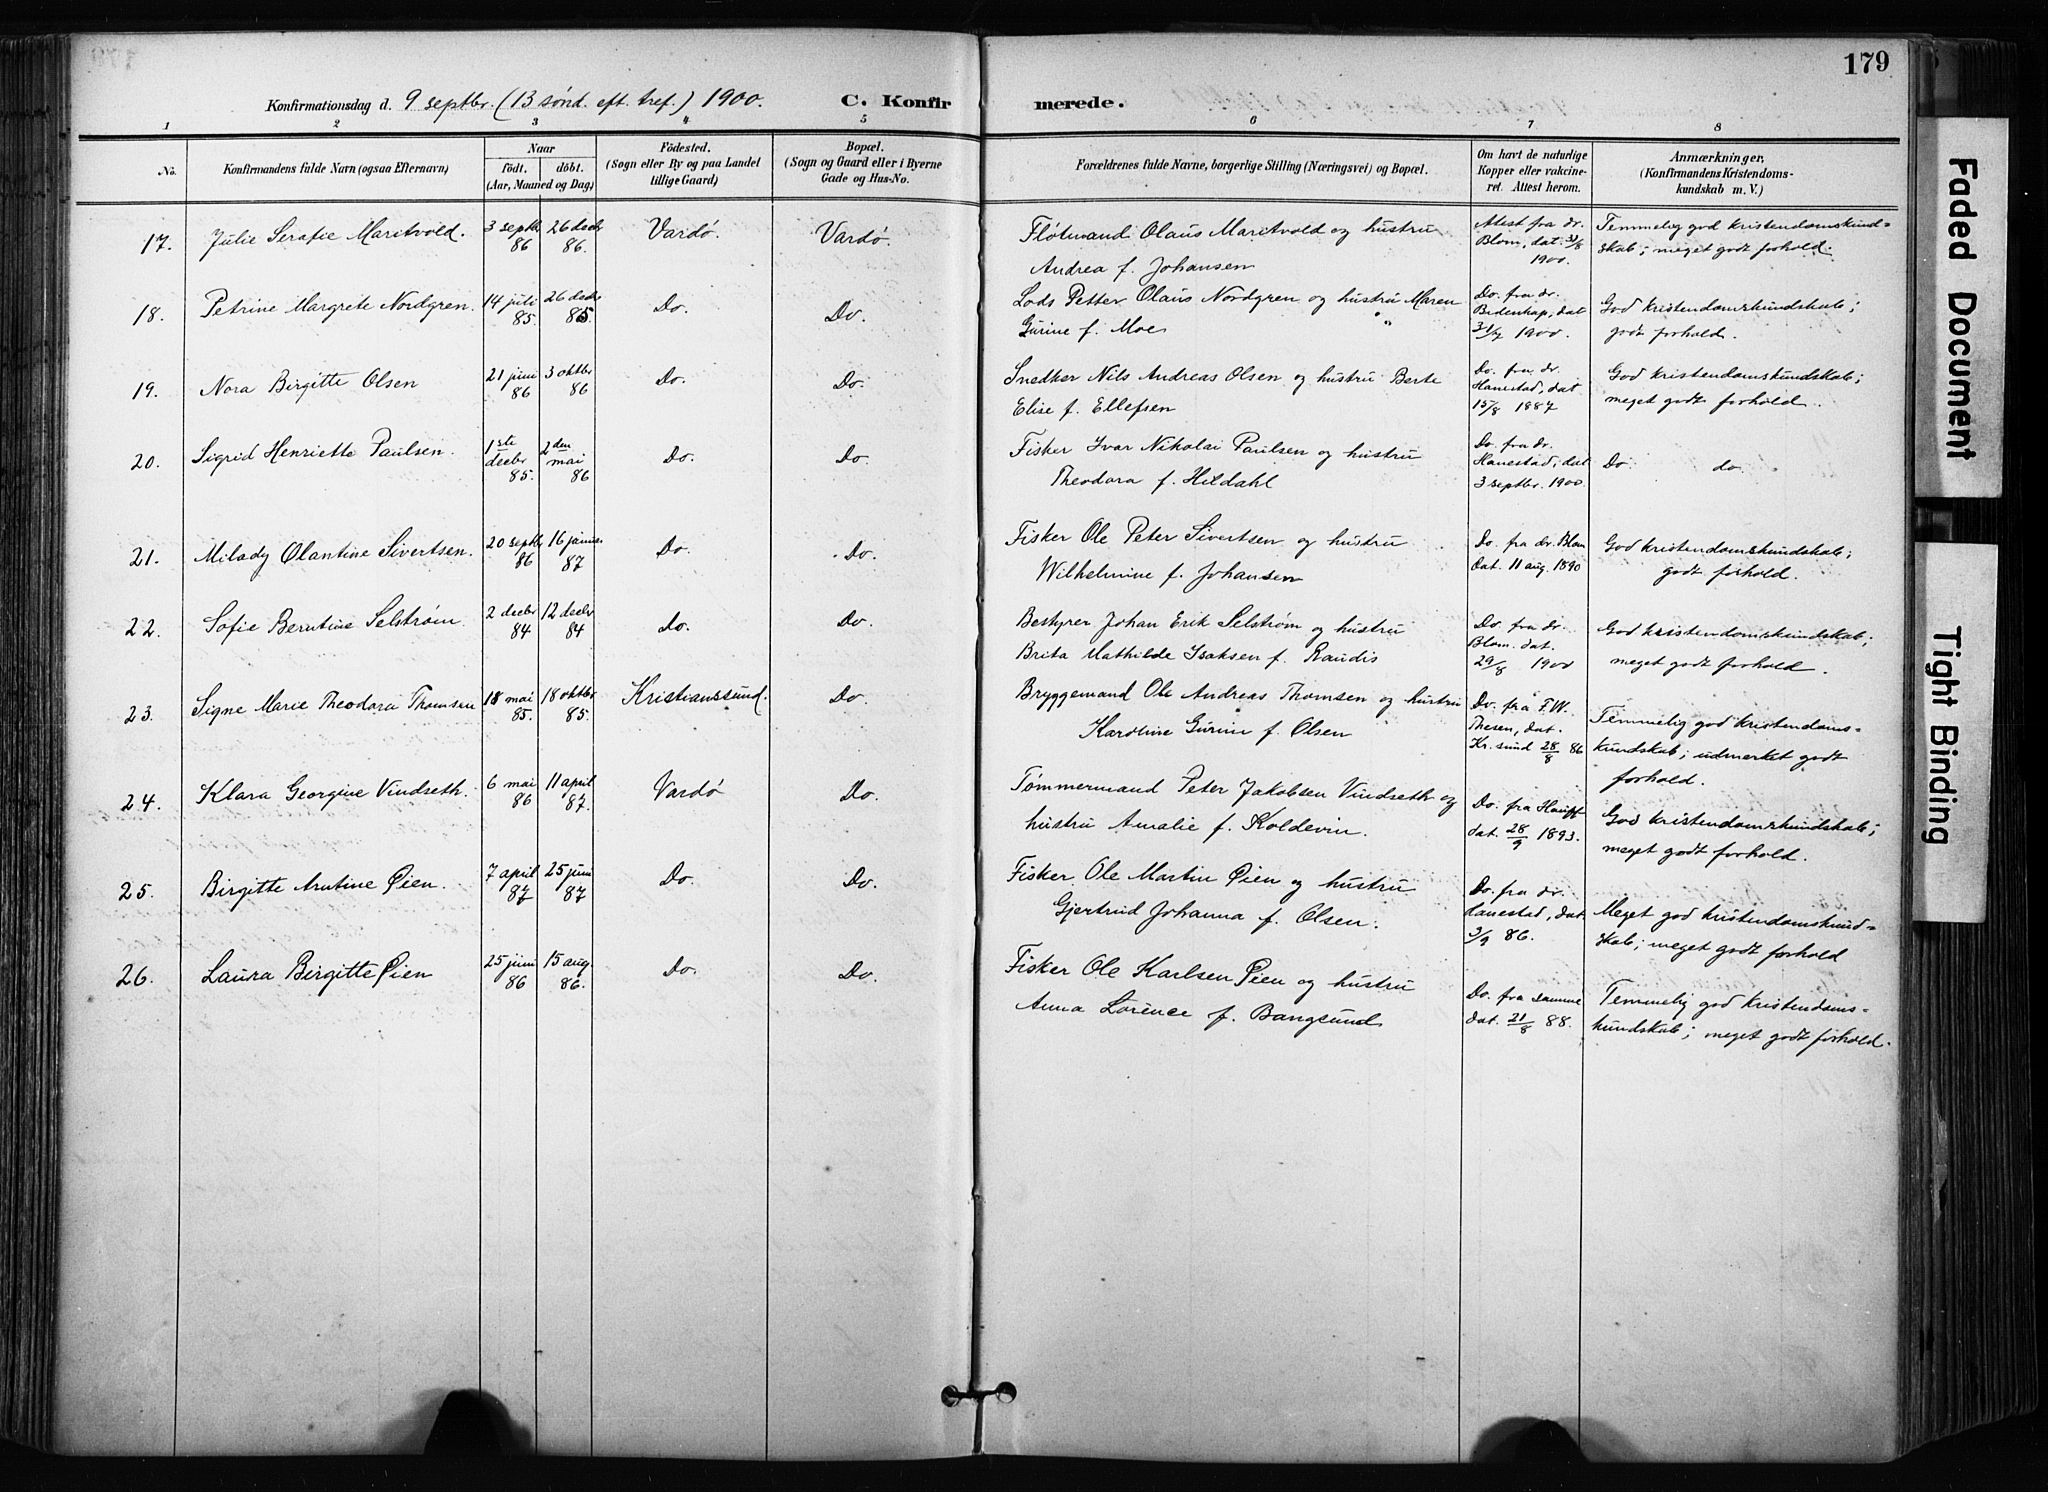 179
Konfirmationsdag d. 9 septbr. (13 sønd. eft. tref.) 1900. C. Konfirmerede.
1 2 3 4 5 6 7 8
No. Konfirmandens fulde Navn (ogsaa Efternavn) Naar födt. döbt. (Aar, Maaned og Dag) Födested. (Sogn eller By og paa Landet tillige Gaard) Bopæl. (Sogn og Gaard eller i Byerne Gade og Hus-No. Forældrenes fulde Navne, borgerlige Stilling (Næringsvei) og Bopæl. Om havt de naturlige Kopper eller vakcineret. Attest herom. Anmærkninger, (Konfirmandens Kristendomskundskab m. V.)
17. Julie Serafie Maritvold. 3 septbr 86 26 decbr 86. Vardø. Vardø. Fløtmand Olaus Maritvold og hustru Andrea f. Johansen Attest fra dr. Blom, dat. 31/8 1900. Temmelig god kristendomskundskab; meget godt forhold.
18. Petrine Margrete Nordgren. 14 juli 85. 26 decbr 85. Do. Do. Lods Petter Olaus Nordgren og hustru Maren Gurine f. Moe Do. fra dr. Bidenkap, dat 31/7 1900. God kristendomskundskab; godt forhold.
19. Nora Birgitte Olsen 21 juni 86 3 oktbr 86 Do. Do. Snedker Nils Andreas Olsen og hustru Berte Elise f. Ellefsen Do. fra dr. Hanestad, dat 15/8 1887 God kristendomskundskab; meget godt forhold.
20. Sigrid Henriette Paulsen. 1ste decbr 85. 2den mai 86 Do. Do. Fisker Ivar Nikolai Paulsen og hustru Theodora f. Hildahl Do. fra dr. Hanestad, dat 3 septbr. 1900. Do. do.
21. Milady Olantine Sivertsen. 20 septbr 86 16 januar 87 Do. Do. Fisker Ole Peter Sivertsen og hustru Wilhelmine f. Johansen Do. fra dr. Blom dat. 11 aug. 1890 God kristendomskundskab; godt forhold.
22. Sofie Berntine Selstrøm. 2 decbr 84 12 decbr 84 Do. Do. Bestyrer Johan Erik Selstrøm og hustru Brita Mathilde Isaksen f. Raudis Do. fra dr. Blom. dat. 29/8 1900 God kristendomskundskab; meget godt forhold.
23. Signe Marie Theodora Thomsen 18 mai 85. 18 oktbr 85. Kristianssund. Do. Bryggemand Ole Andreas Thomsen og hustru Karoline Gurine f. Olsen Do. fra F.W. Thesen, dat. Kr.sund 28/8 86 Temmelig god kristendomskundskab; udmerket godt forhold.
24. Klara Georgine Vindseth. 6 mai 86 11 april 87. Vardø Do. Tømmermand Peter Jakobsen Vindseth og hustru Amalie f. Koldevin. Do. fra dat. 28/9 1893. God kristendomskundskab; meget godt forhold.
25. Birgitte Arntine Øien. 7 april 87 25 juni 87 Do. Do. Fisker Ole Martin Øien og hustru Gjertrud Johanna f. Olsen. Do. fra dr. Hanestad, dat. 3/9 86. Meget god kristendomskundskab; meget godt forhold
26. Laura Birgitte Øien 25 juni 86 15 aug. 86. Do. Do. Fisker Ole Karlsen Øien og hustru Anna Lorence f. Bangsund Do. fra samme dat. 21/8 88. Temmelig god kristendomskundskab; meget godt forhold.
Faded Document
Tight Binding